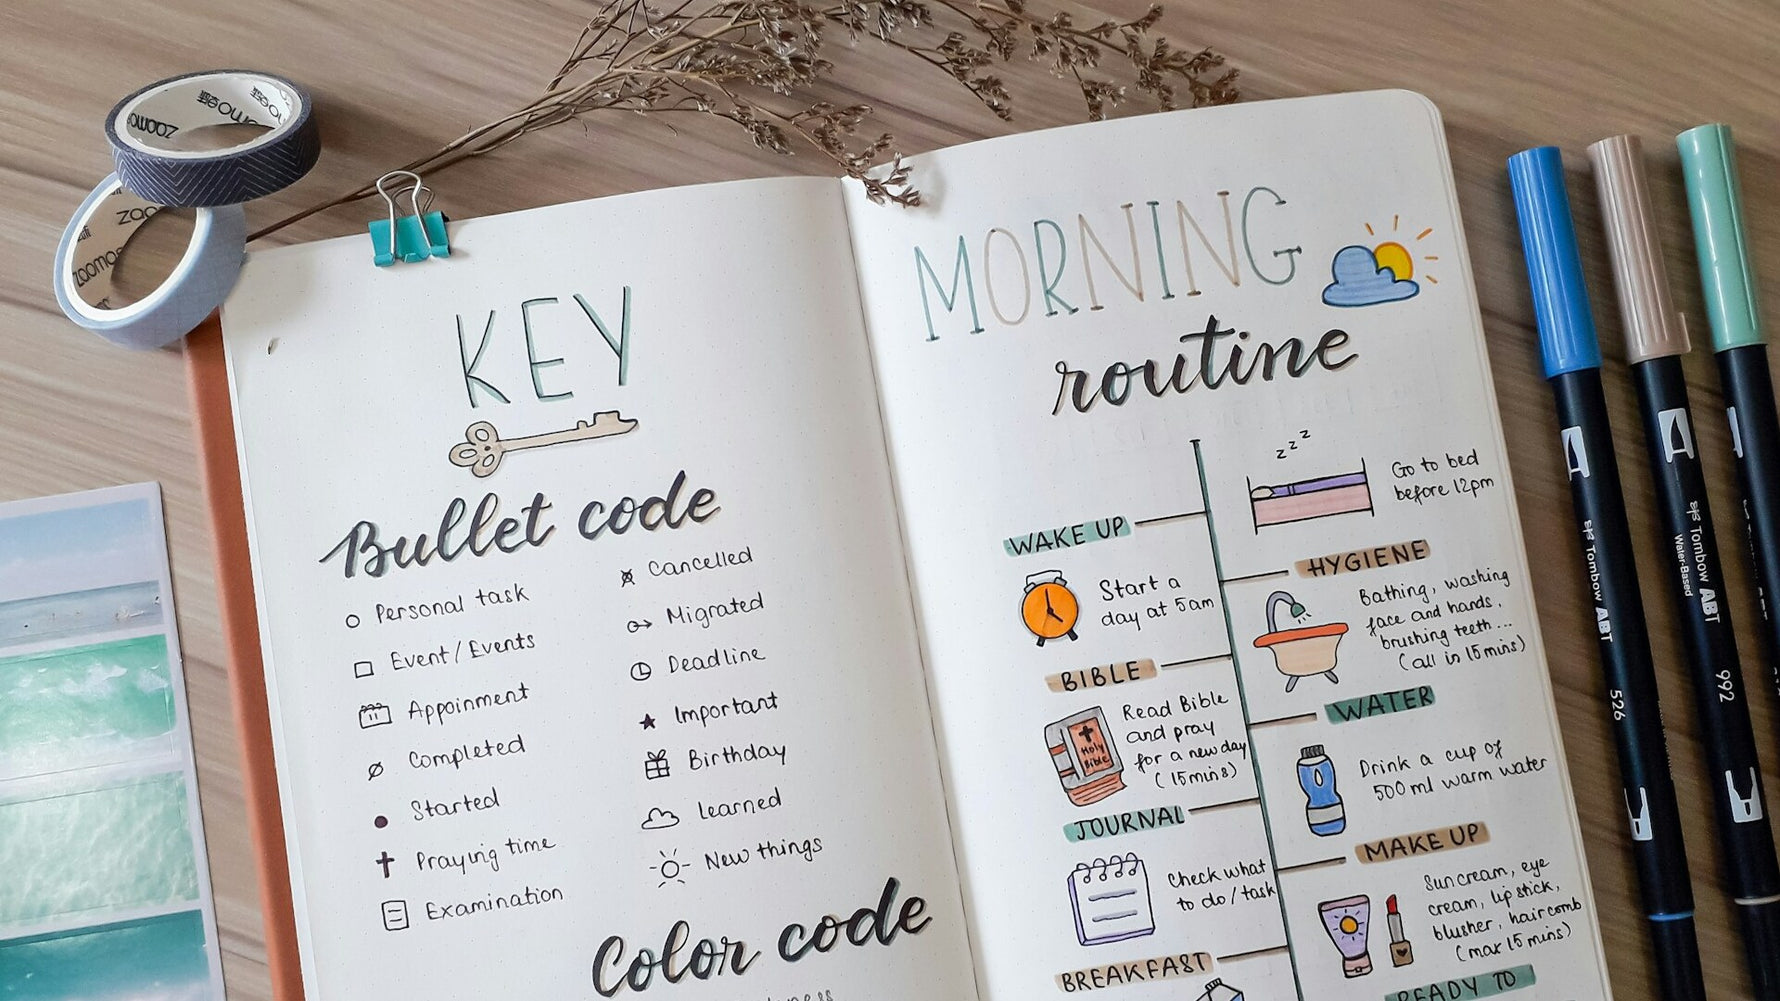 KEY
Bullet code
Personal task
Event / Events
Appoinment
Completed
Started
Praying time
Examination
Cancelled
Migrated
Deadline
Important
Birthday
Learned
New things
Color code
MORNING
routine
zzz
Go to bed
before 12pm
WAKE UP
Start a
day at 5am
HYGIENE
Bathing, washing
face and hands,
brushing teeth ...
(all in 15 mins)
BIBLE
Holy
Bible
Read Bible
and pray
for a new day
(15mins)
WATER
Drink a cup of
500 ml warm water
JOURNAL
Check what
to do / task
MAKE UP
Suncream, eye
cream, lip stick,
blusher, hair comb
(max 15 mins)
BREAKFAST
READY TO
Tombow ABT
526
Tombow ABT
Water-Based
992
zoomo
zoomo